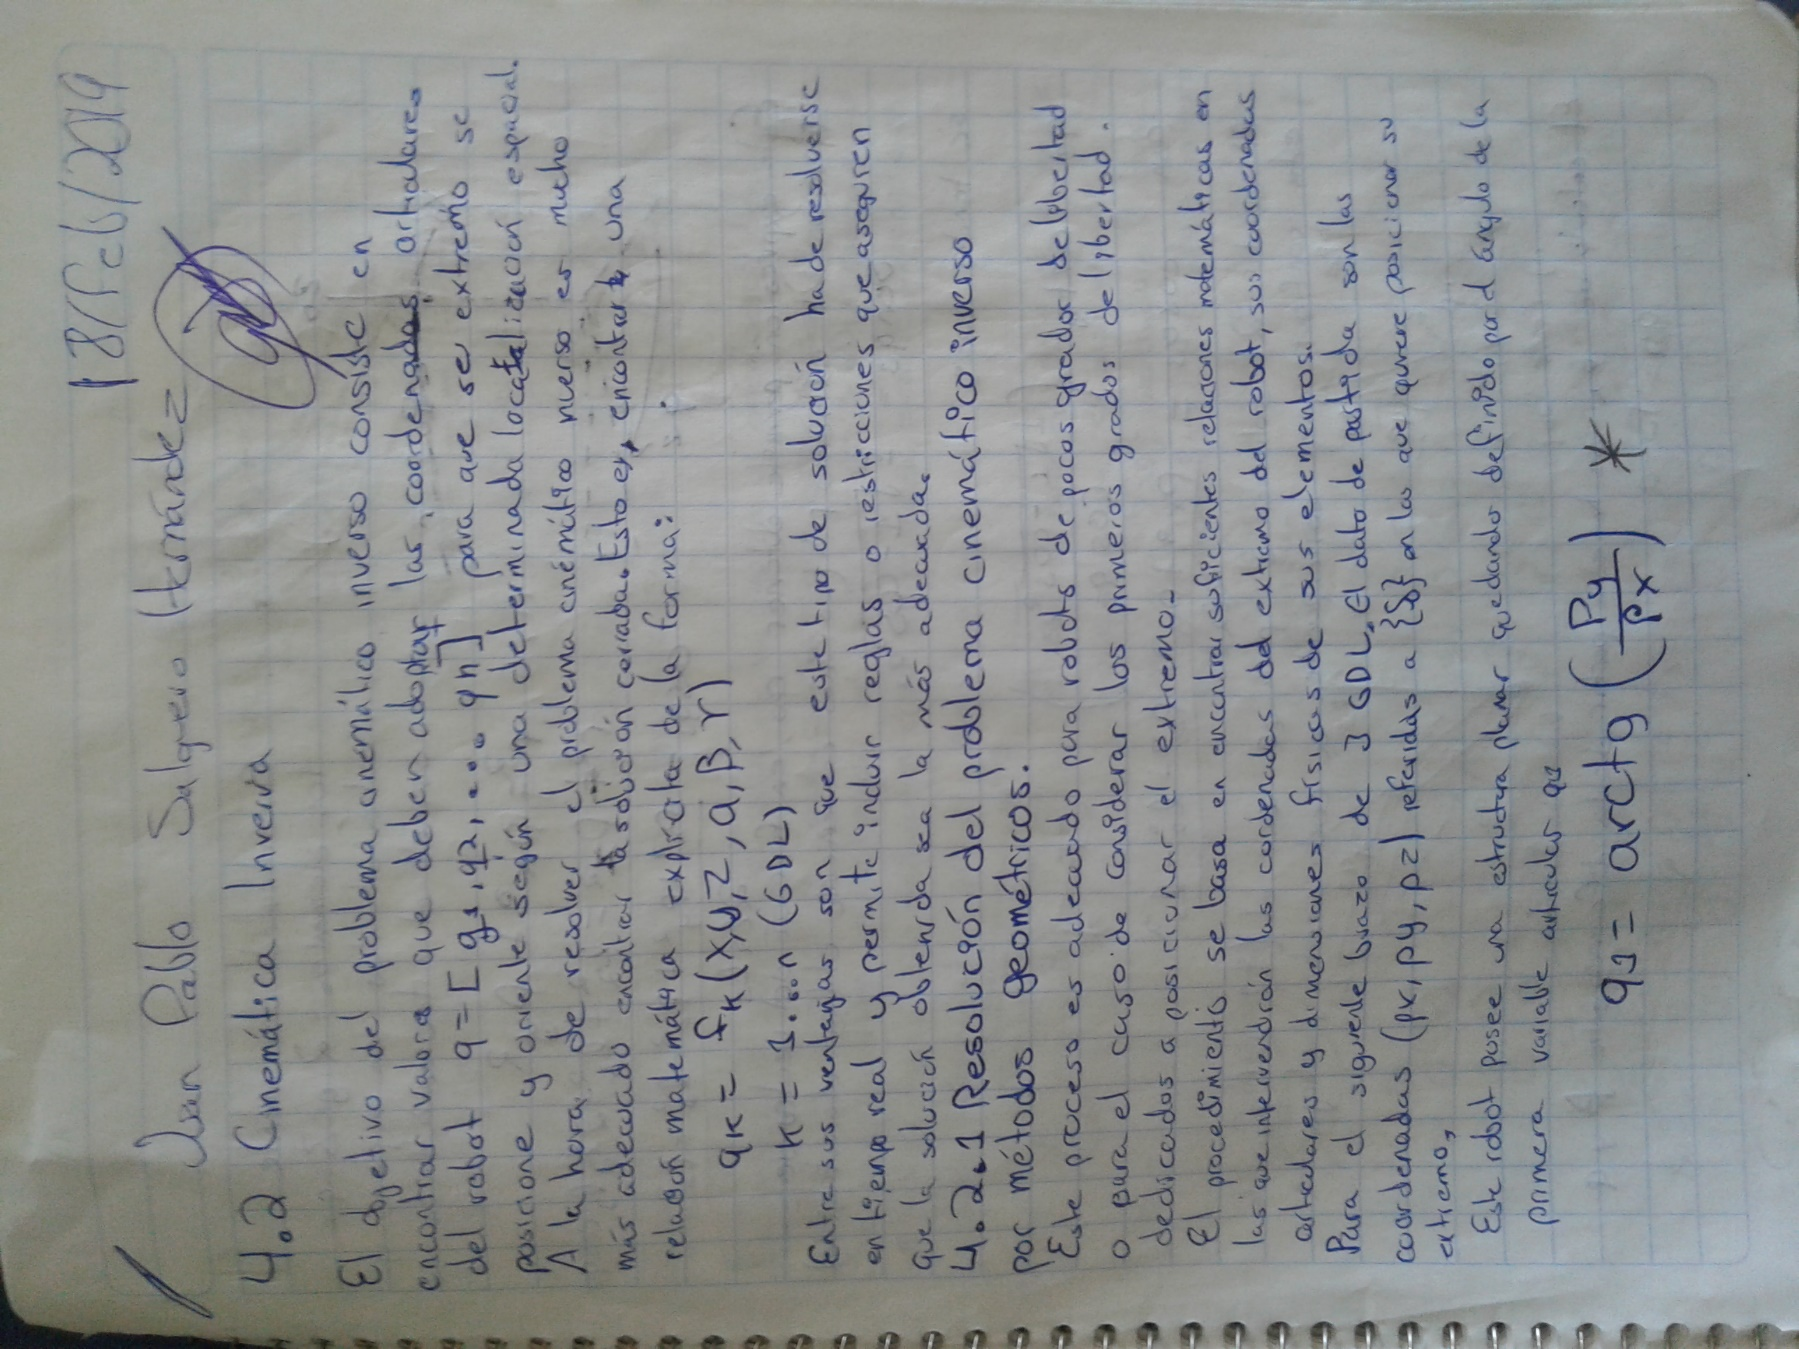 18/Feb/2019
Juan Pablo Salguero Hernández
4.2 Cinemática Inversa
El objetivo del problema cinemático inverso consiste en
encontrar valores que deben adoptar las coordenadas articulares
del robot q = [q1, q2, ... qn] para que se extremo se
posicione y oriente según una determinada localización espacial.
A la hora de resolver el problema cinemático inverso es mucho
más adecuado encontrar la solución cerrada. Esto es, encontrar una
relación matemática explicita de la forma:
qk = fk (x, y, z, α, β, γ)
k = 1...n (GDL)
Entre sus ventajas son que este tipo de solución ha de resolverse
en tiempo real y permite incluir reglas o restricciones que aseguren
que la solución obtenida sea la más adecuada.
4.2.1 Resolución del problema cinemático inverso
por métodos geométricos.
Este proceso es adecuado para robots de pocos grados de libertad
o para el caso de considerar los primeros grados de libertad.
dedicados a posicionar el extremo.
El procedimiento se basa en encontrar suficientes relaciones matemáticas en
las que intervendrán las cordenadas del extremo del robot, sus coordenadas
articulares y dimensiones físicas de sus elementos.
Para el siguiente brazo de 3 GDL, El dato de partida son las
coordenadas (px, py, pz) referidas a {S} en las que quiere posicionar su
extremo,
Este robot posee una estructura planar quedando definido por el ángulo de la
primera variable articular q1
q1 = arctg (Py/Px) *